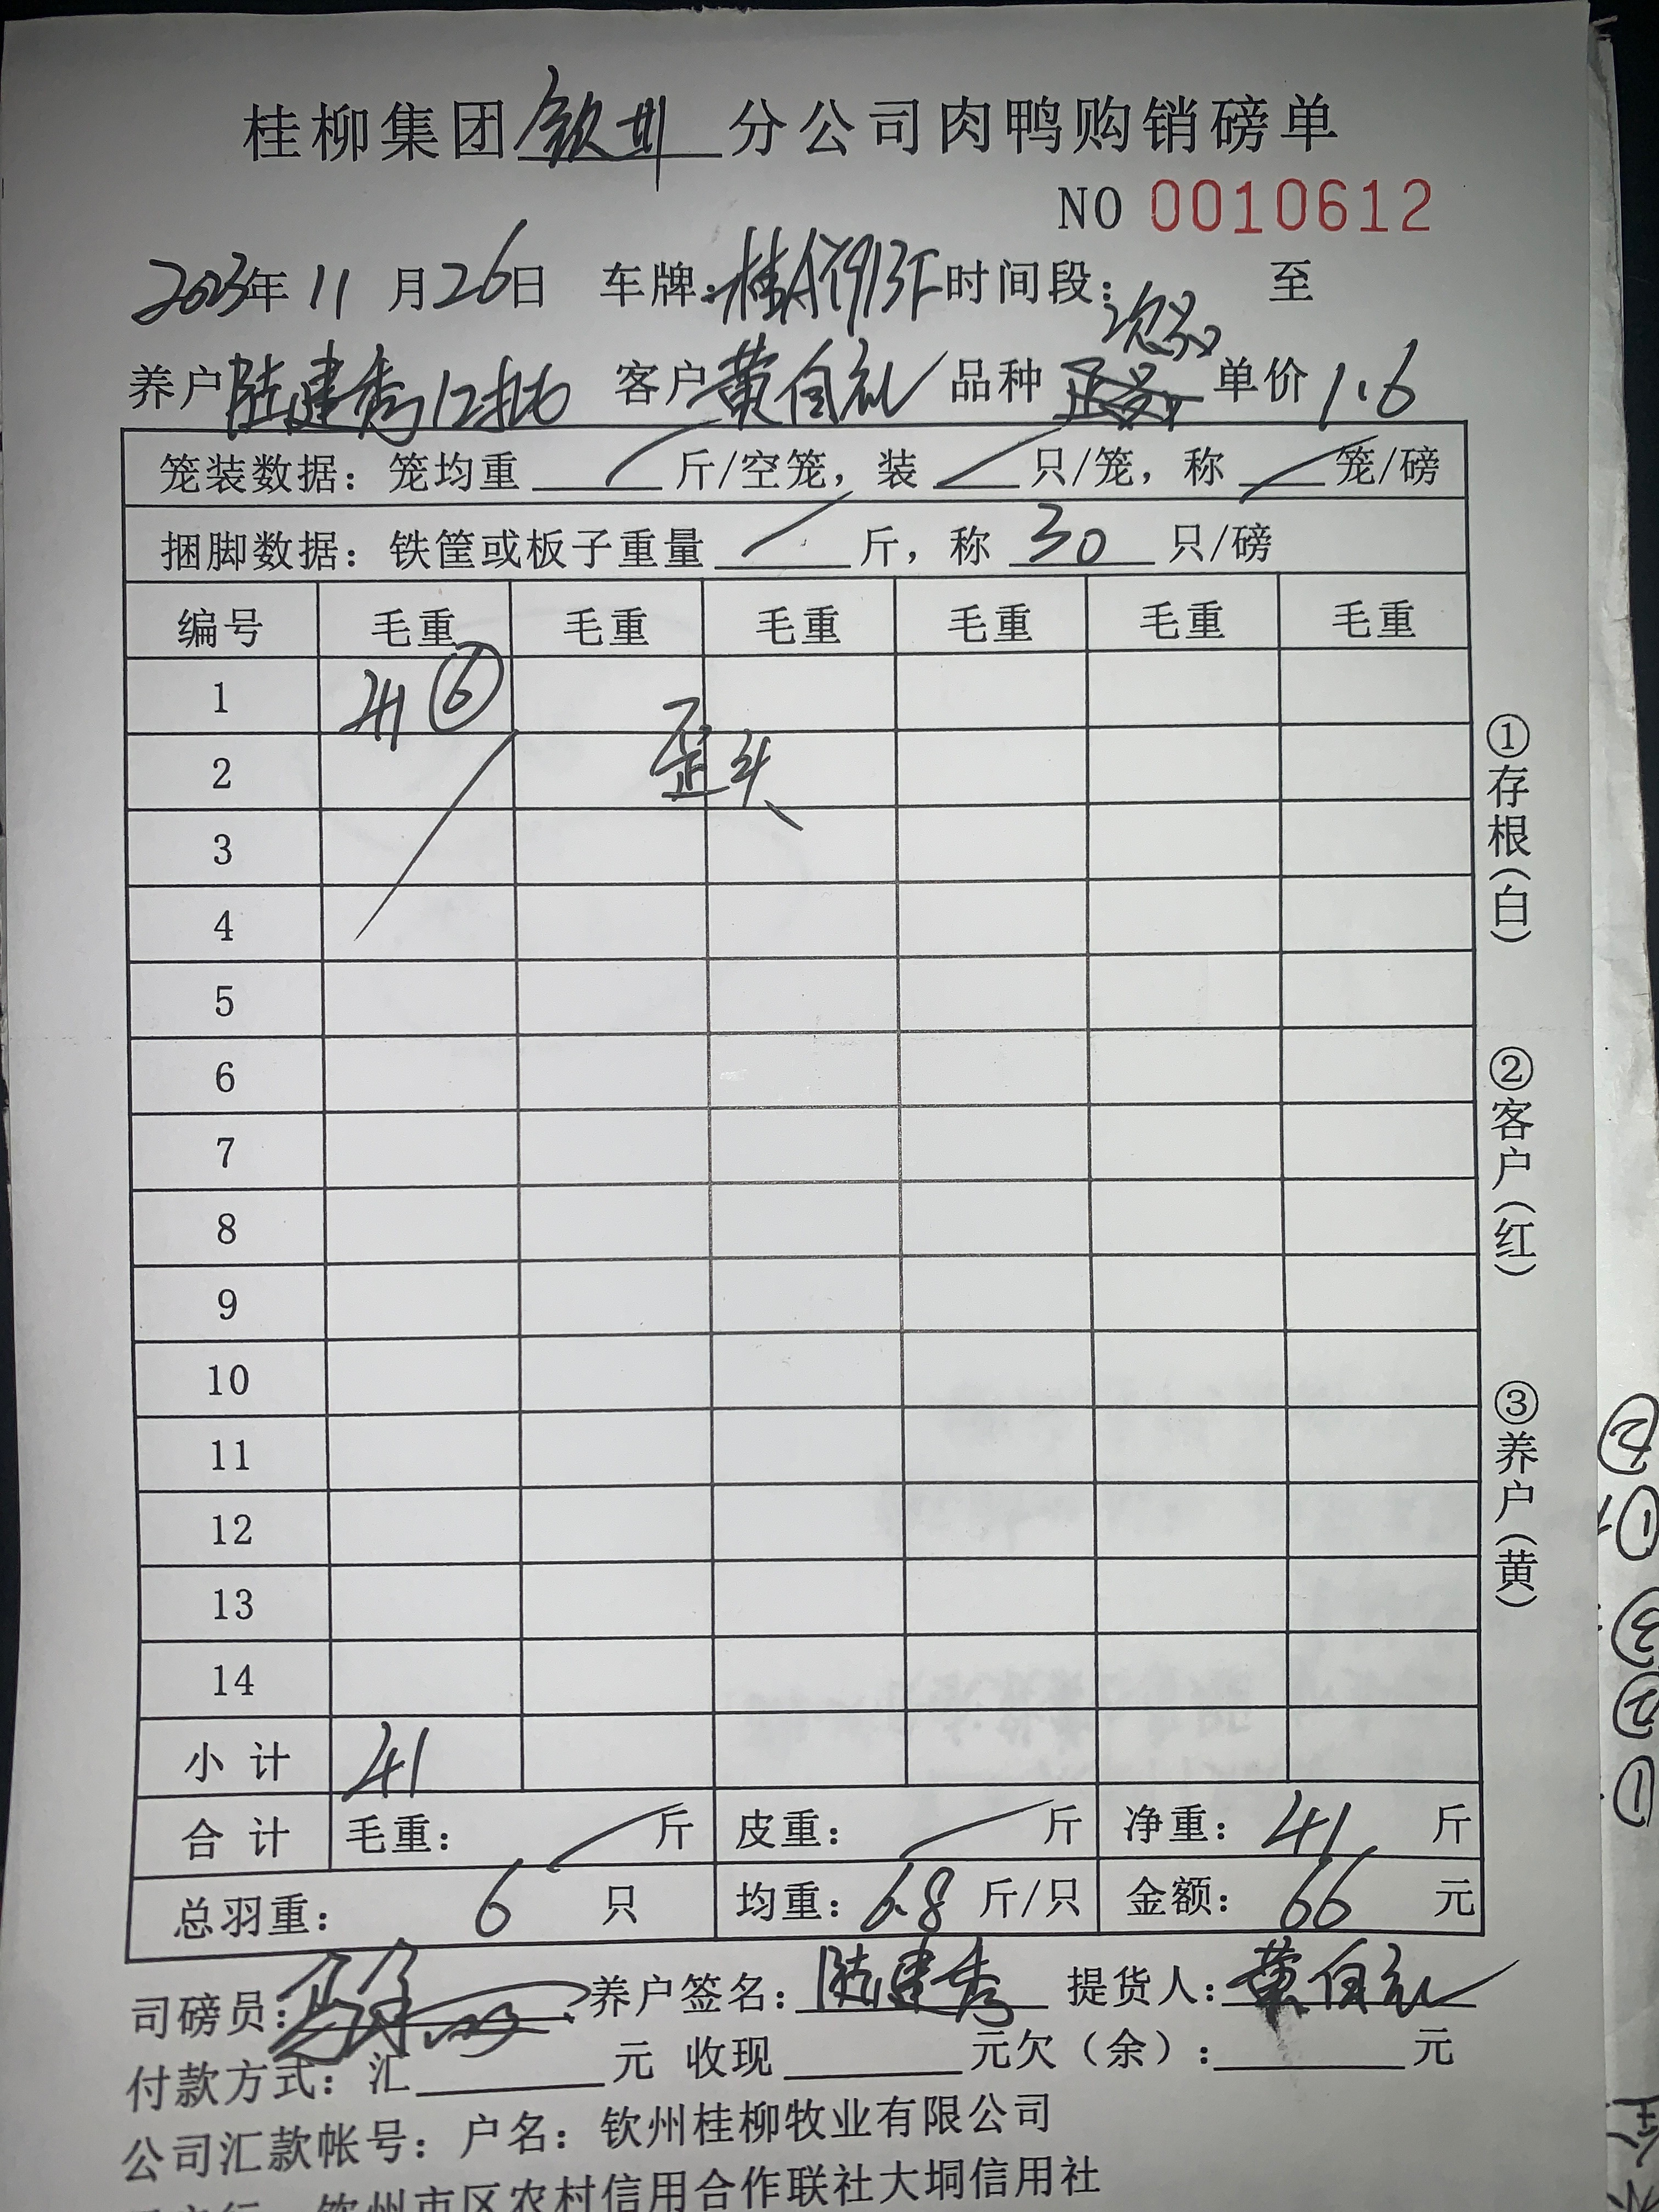 桂柳集团钦州分公司肉鸭购销磅单
NO 0010612
2023年11月26日 车牌:桂AY913F时间段: 至
养户陆建秀12批 客户黄自礼 品种 次鸡 单价1.6
笼装数据: 笼均重 / 斤/空笼, 装 / 只/笼, 称 / 笼/磅
捆脚数据: 铁筐或板子重量 / 斤, 称 30 只/磅
编号 毛重 毛重 毛重 毛重 毛重 毛重
1 41 ⑥
2 歪头
3
4
5
6
7
8
9
10
11
12
13
14
小 计 41
合 计 毛重: / 斤 皮重: / 斤 净重: 41 斤
总羽重: 6 只 均重: 6.8 斤/只 金额: 66 元
司磅员: 养户签名: 陆建秀 提货人: 黄自礼
付款方式: 汇 元 收现 元欠(余): 元
公司汇款帐号: 户名: 钦州桂柳牧业有限公司
钦州市区农村信用合作联社大垌信用社
①存根(白)
②客户(红)
③养户(黄)